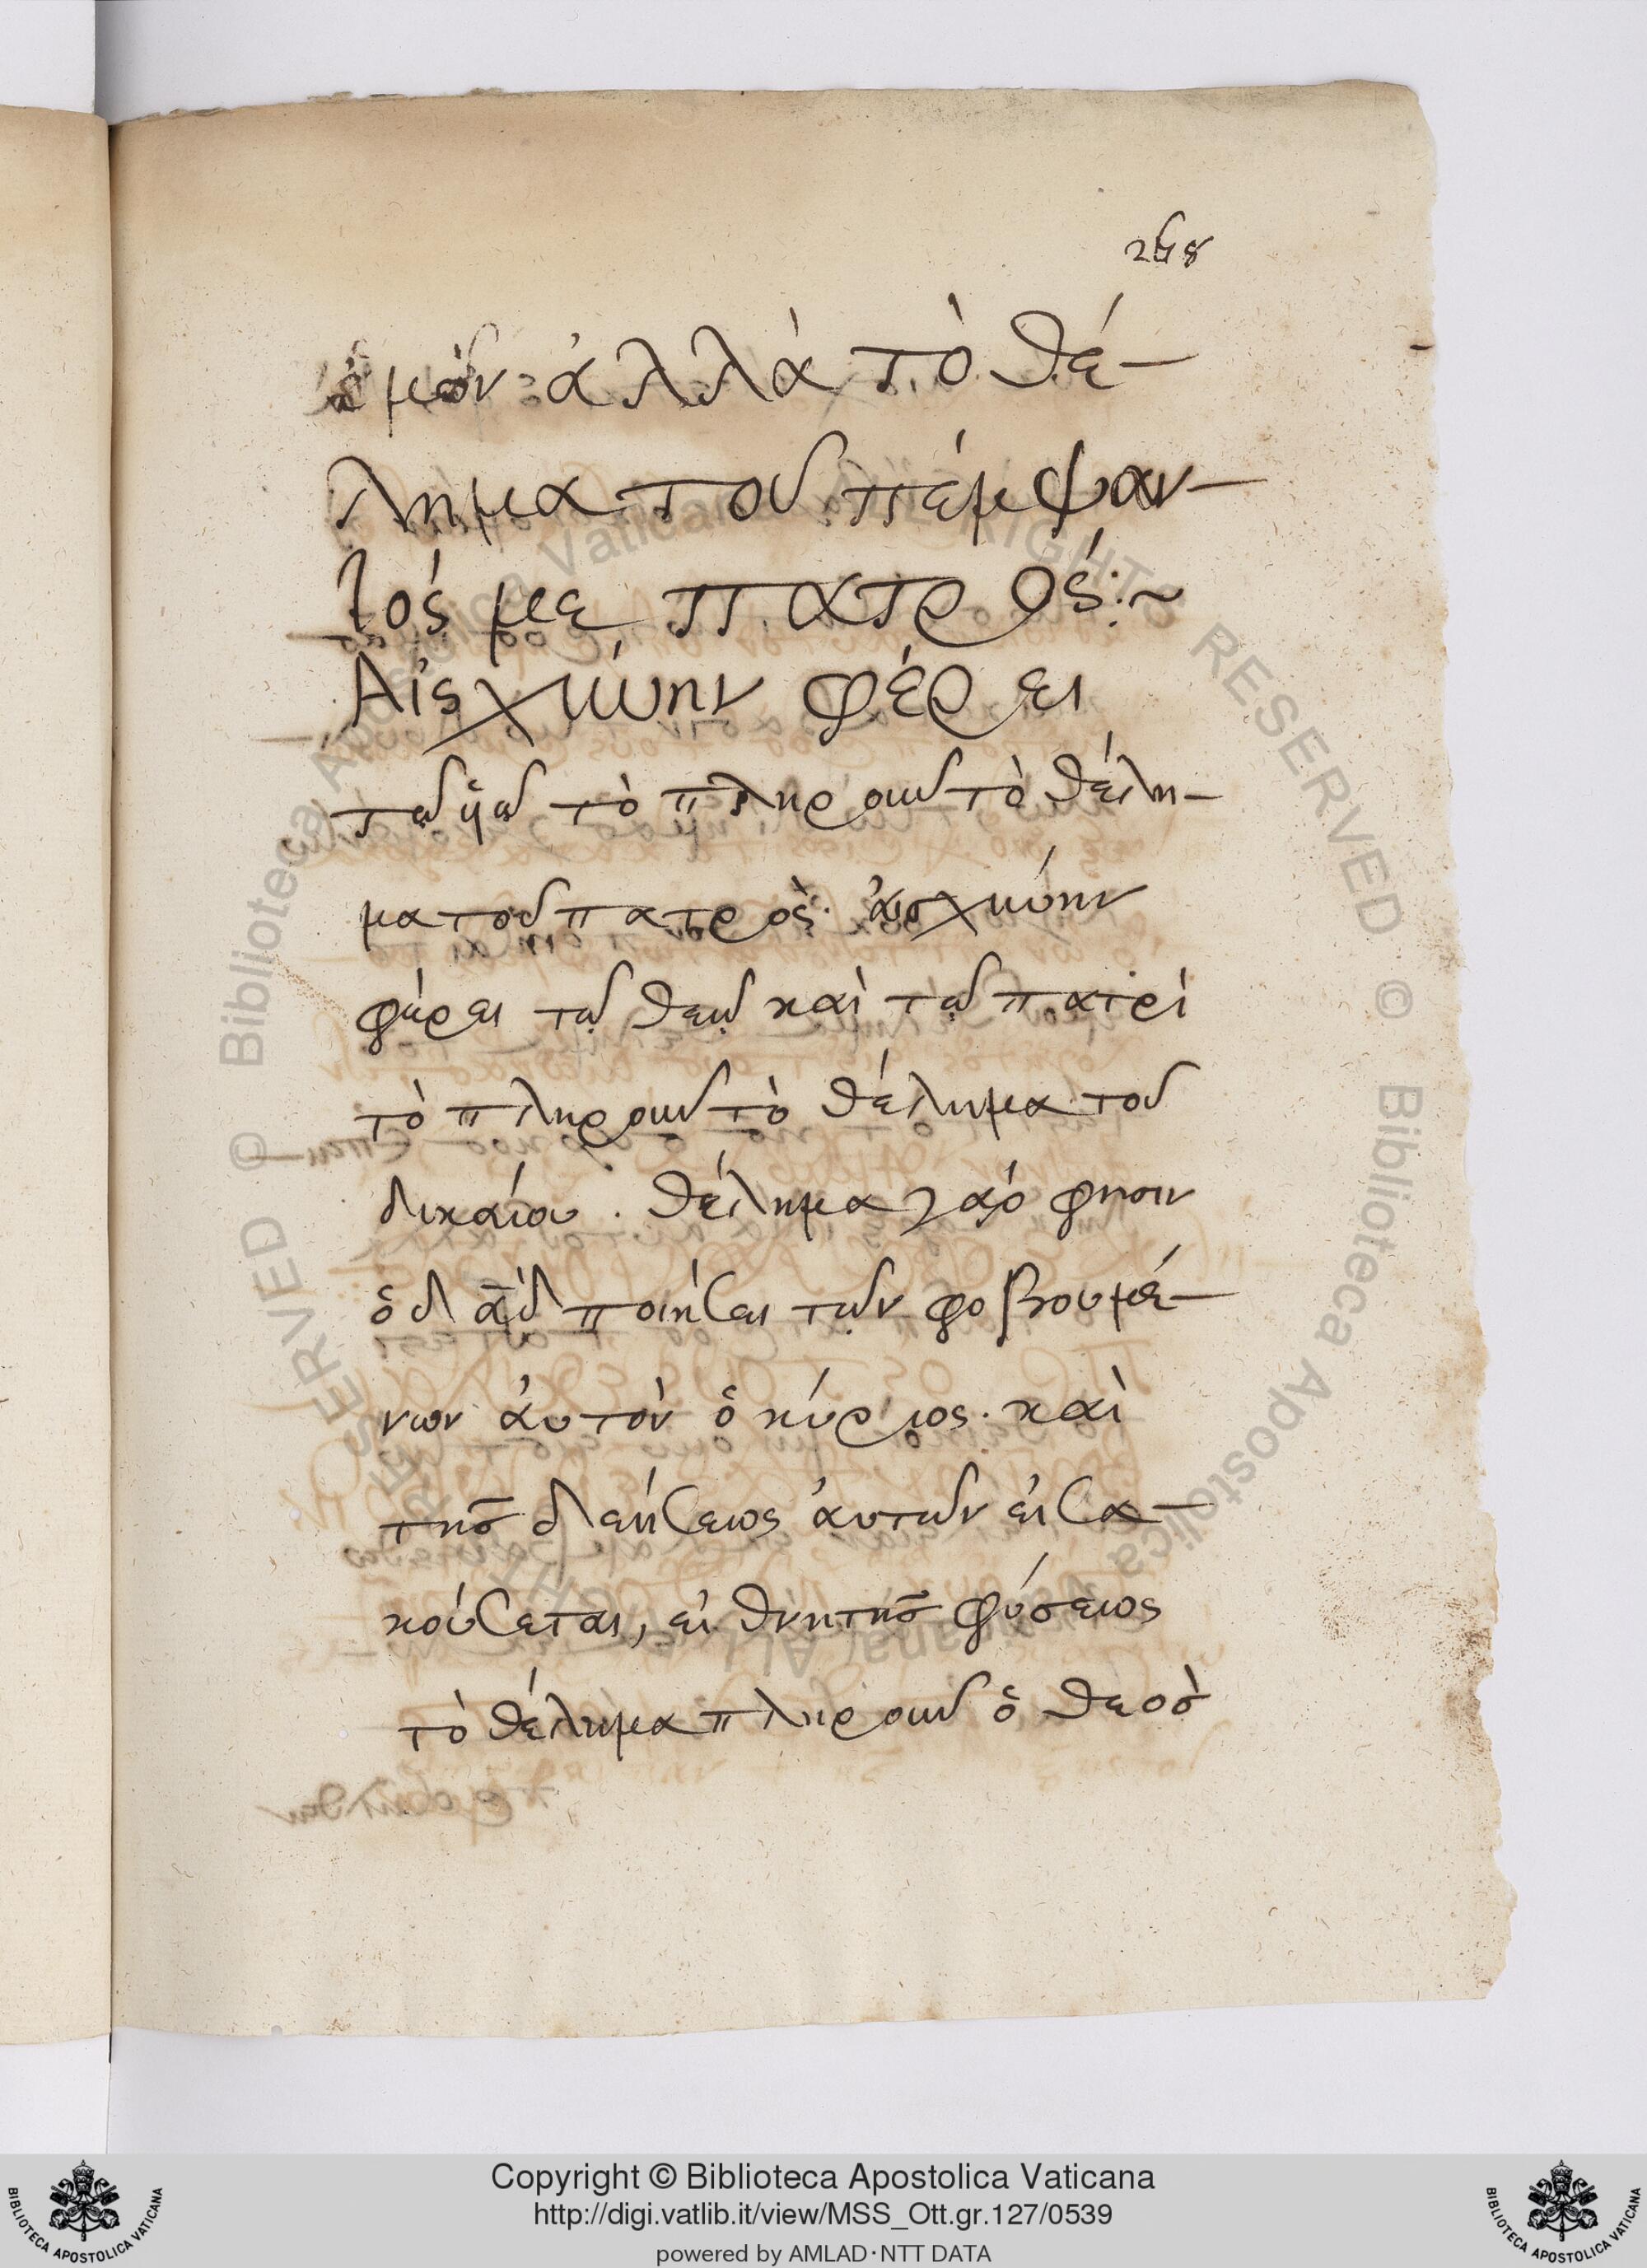 258
ἐμὸν ἀλλὰ τὸ θέ-
λημα τοῦ πέμψαν-
τός με πατρός:~
Αἰσχύνην φέρει
τῷ υἱῷ τὸ πληροῦν τὸ θέλη-
μα τοῦ πατρὸς· ἀισχύνην
φέρει τῷ θεῷ καὶ τῷ πατρὶ
τὸ πληροῦν τὸ θέλημα τοῦ
δικαίου. θέλημα γάρ φησιν
ὁ δᾱδ ποιήσει τῶν φοβουμέ-
νων ἀυτὸν ὁ κύριος· καὶ
τῆς δεήσεως ἀυτῶν εἰσα-
κούσεται, εἰ θνητῆς φύσεως
τὸ θέλημα πληροῦν ὁ θεὸσ
Copyright © Biblioteca Apostolica Vaticana
http://digi.vatlib.it/view/MSS_Ott.gr.127/0539
powered by AMLAD·NTT DATA
BIBLIOTECA APOSTOLICA VATICANA
BIBLIOTECA APOSTOLICA VATICANA